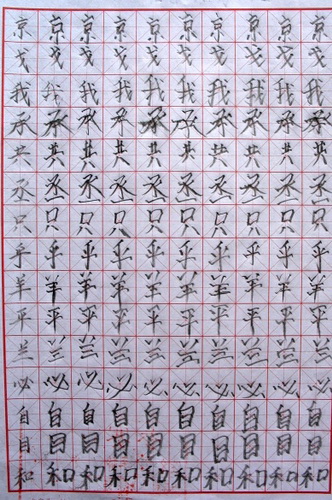 京京京京京京京京京京
戈戈戈戈戈戈戈戈戈戈
我我我我我我我我我我
承承承承承承承承承承
共共共共共共共共共共
丞丞丞丞丞丞丞丞丞丞
只只只只只只只只只只
乎乎乎乎乎乎乎乎乎乎
羊羊羊羊羊羊羊羊羊羊
平平平平平平平平平平
兰兰兰兰兰兰兰兰兰兰
必必必必必必必必必必
自自自自自自自自自自
目目目目目目目目目目
和和和和和和和和和和